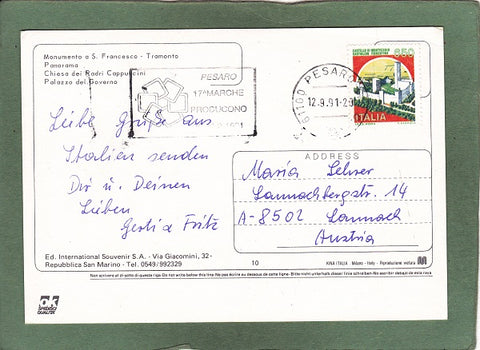 Monumento a S. Francesco - Tramonto
Panorama
Chiesa dei Padri Cappuccini
Palazzo del Governo
PESARO
17ª MARCHE
PRODUCONO
61100 PESARO
12.9.91-20
650
ITALIA
Liebe Grüße aus
Italien senden
Dir u. Deinen
Lieben
Gerli u Fritz
ADDRESS
Maria
Lannachbergstr. 14
A-8502 Lannach
Austria
Ed. International Souvenir S.A. - Via Giacomini, 32 -
Repubblica San Marino - Tel. 0549/992329
10
KINA ITALIA Milano - Italy - Reproduzione vietata
Non scrivere al di sotto di questa riga-Do not write below this line-Ne pas écrire au dessous de cette ligne-Bitte nicht unterhalb dieser Linie schreiben-No escribir debajo de esta raya